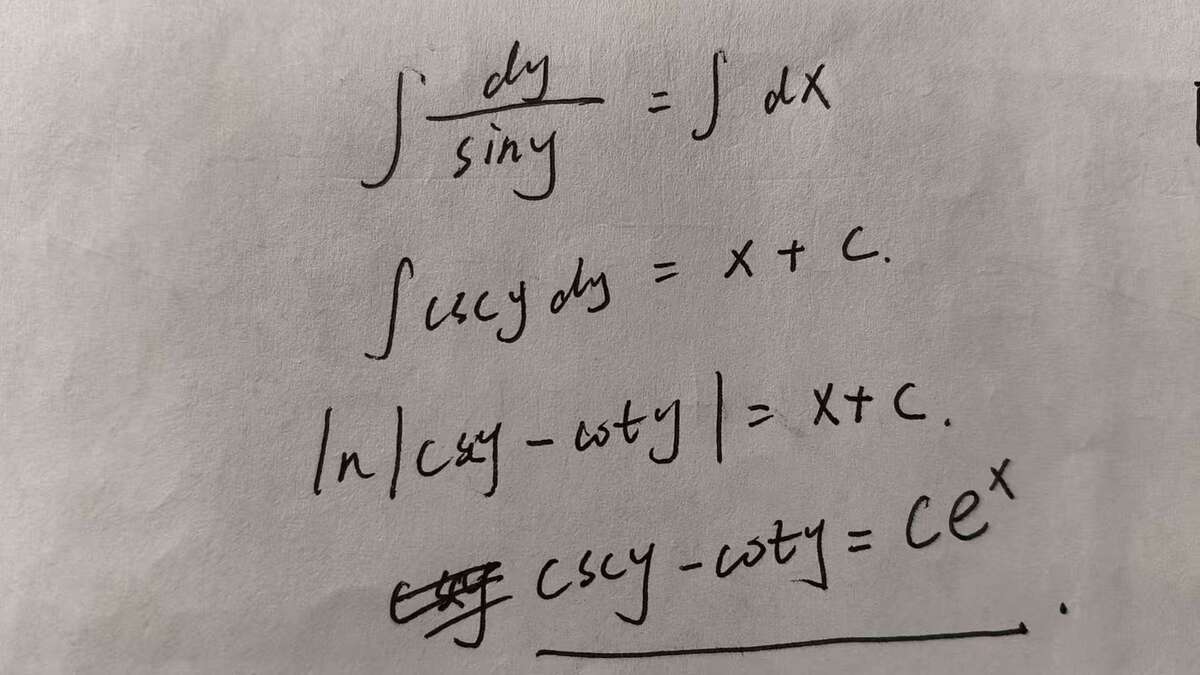 ∫ dy/siny = ∫ dx
∫ cscy dy = x + c.
ln|cscy - coty| = x+c.
cscy - coty = Ce^x.